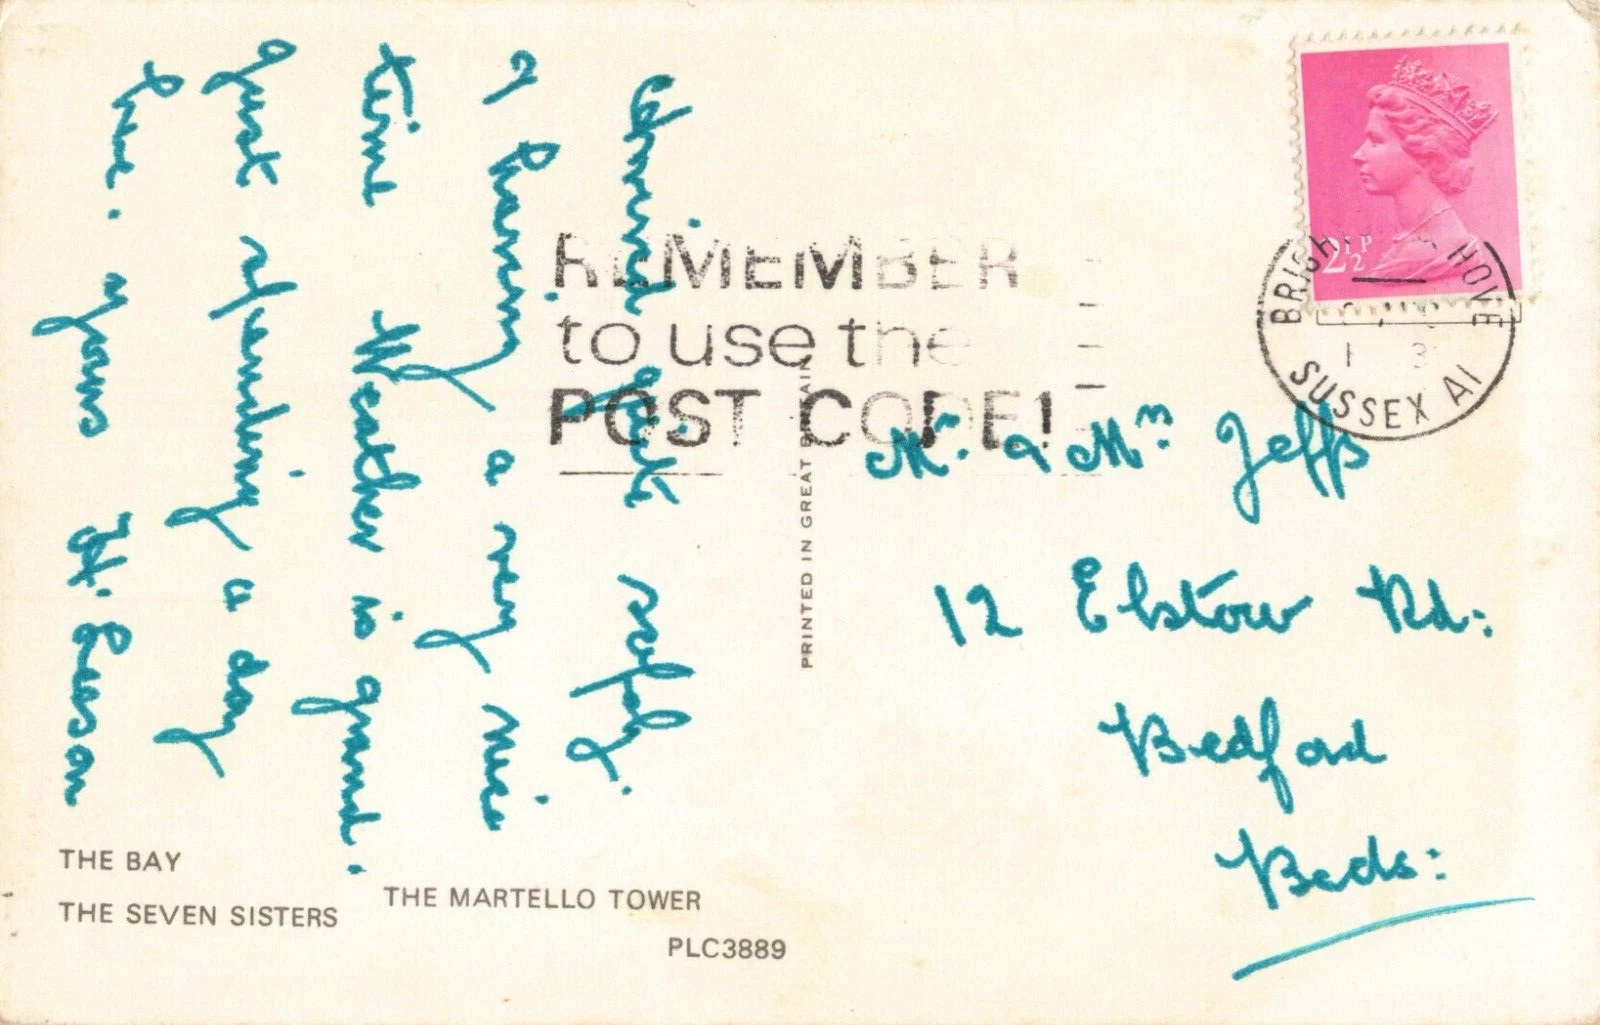 Arrived quite safely.
& having a very nice
time Weather is grand.
Just spending a day
here. yours H. Beeson
REMEMBER
to use the
POST CODE!
2½P
BRIGH HOVE
SUSSEX A1
PRINTED IN GREAT BRITAIN
Mr. & Mrs Jeffs
12 Elstow Rd:
Bedford
Beds:
THE BAY
THE SEVEN SISTERS
THE MARTELLO TOWER
PLC3889